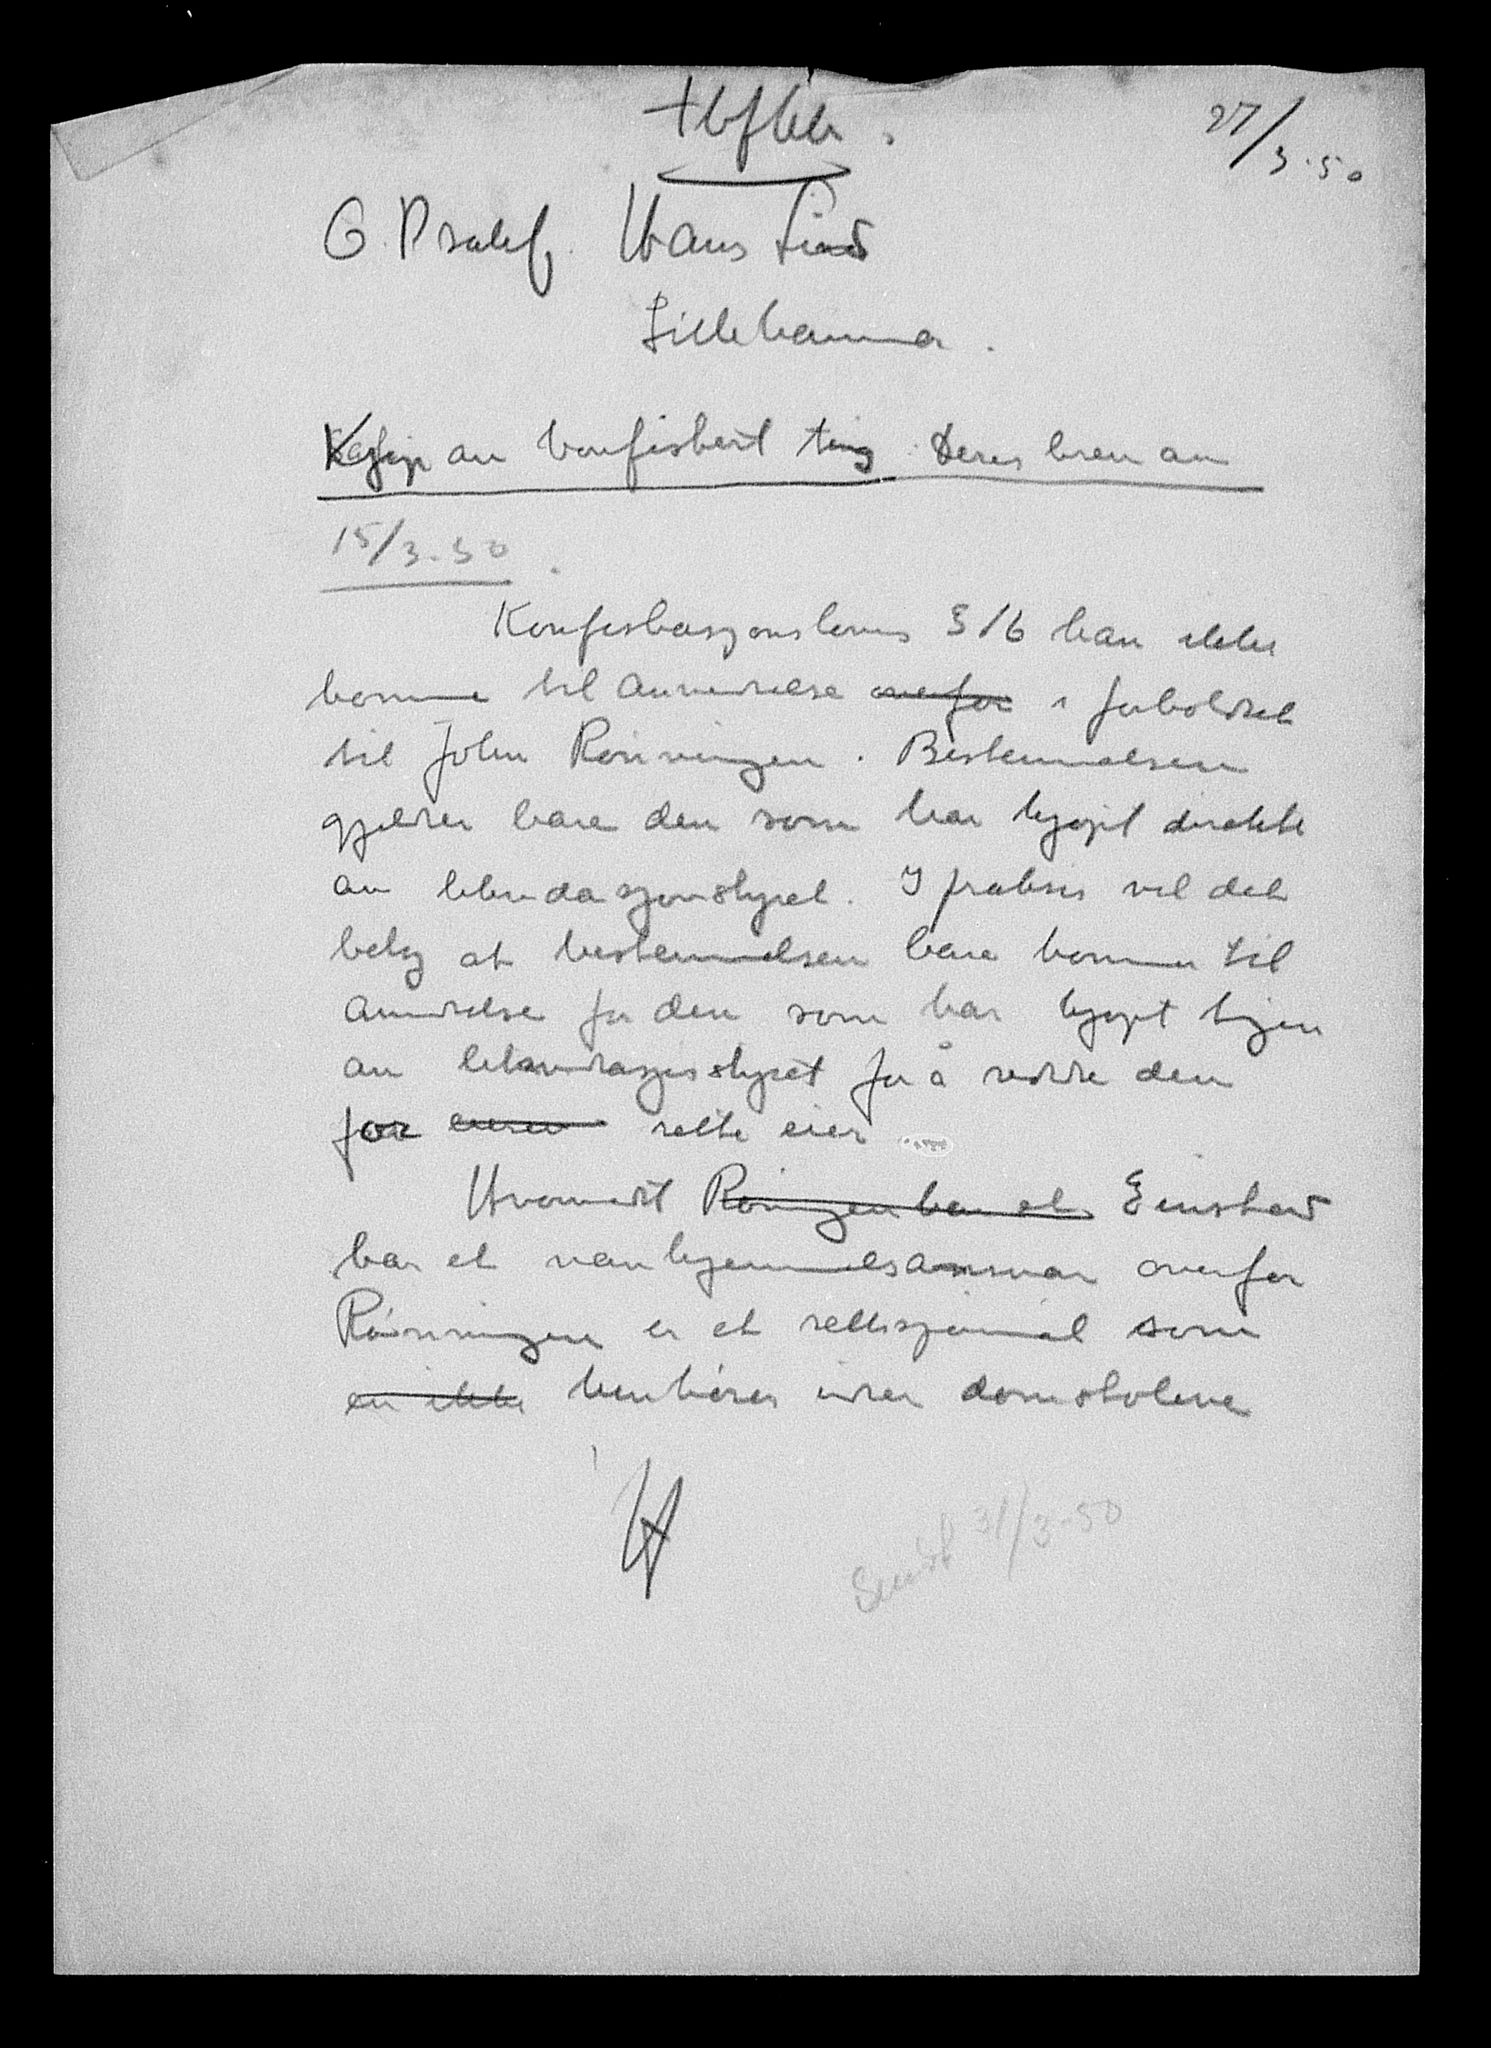 27/3.50
O.r.sakf. Hans Lind
Lillehammer.
Kjøp av konfiskert ting. Deres brev av
15/3-50.
Konfiskasjonslovens § 16 kan ikke
komme til anvendelse overfor i forholdet
til John Rönningen. Bestemmelsen
gjelder bare den som har kjøpt direkte
av likvidasjonsstyret. I praksis vil det
bety at bestemmelsen bare kommer til
anvendelse for den som har kjøpt tingen
av likvidasjonsstyret for å redde den
for eieren rette eier
Hvorvidt Röningen har et Einstad
har et vanhjemmelsansvar overfor
Rönningen er et rettsspörsmål som
en ikke henhörer under domstolene
Sendt 31/3-50